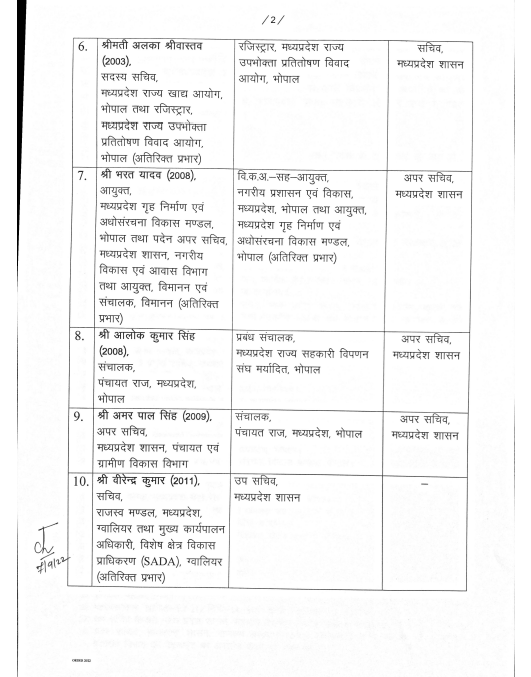 /2/
6.
श्रीमती अलका श्रीवास्तव
(2003),
सदस्य सचिव,
मध्यप्रदेश राज्य खाद्य आयोग,
भोपाल तथा रजिस्ट्रार,
मध्यप्रदेश राज्य उपभोक्ता
प्रतितोषण विवाद आयोग,
भोपाल (अतिरिक्त प्रभार)
रजिस्ट्रार, मध्यप्रदेश राज्य
उपभोक्ता प्रतितोषण विवाद
आयोग, भोपाल
सचिव,
मध्यप्रदेश शासन
7.
श्री भरत यादव (2008),
आयुक्त,
मध्यप्रदेश गृह निर्माण एवं
अधोसंरचना विकास मण्डल,
भोपाल तथा पदेन अपर सचिव,
मध्यप्रदेश शासन, नगरीय
विकास एवं आवास विभाग
तथा आयुक्त, विमानन एवं
संचालक, विमानन (अतिरिक्त
प्रभार)
वि.क.अ.–सह–आयुक्त,
नगरीय प्रशासन एवं विकास,
मध्यप्रदेश, भोपाल तथा आयुक्त,
मध्यप्रदेश गृह निर्माण एवं
अधोसंरचना विकास मण्डल,
भोपाल (अतिरिक्त प्रभार)
अपर सचिव,
मध्यप्रदेश शासन
8.
श्री आलोक कुमार सिंह
(2008),
संचालक,
पंचायत राज, मध्यप्रदेश,
भोपाल
प्रबंध संचालक,
मध्यप्रदेश राज्य सहकारी विपणन
संघ मर्यादित, भोपाल
अपर सचिव,
मध्यप्रदेश शासन
9.
श्री अमर पाल सिंह (2009),
अपर सचिव,
मध्यप्रदेश शासन, पंचायत एवं
ग्रामीण विकास विभाग
संचालक,
पंचायत राज, मध्यप्रदेश, भोपाल
अपर सचिव,
मध्यप्रदेश शासन
10.
श्री वीरेन्द्र कुमार (2011),
सचिव,
राजस्व मण्डल, मध्यप्रदेश,
ग्वालियर तथा मुख्य कार्यपालन
अधिकारी, विशेष क्षेत्र विकास
प्राधिकरण (SADA), ग्वालियर
(अतिरिक्त प्रभार)
उप सचिव,
मध्यप्रदेश शासन
–
7/9/22
ORDER 2022